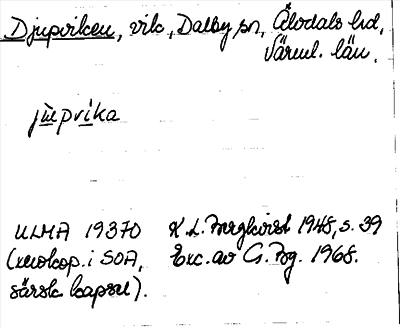 Djupviken, vik, Dalby sn, Älvdals hd,
Värml. län.
jùpvika
ULMA 19370 K.L. Bergkvist 1948, s. 39
(xerokop. i SOA, Exc. av G. Bg. 1968.
särsk. kapsel).